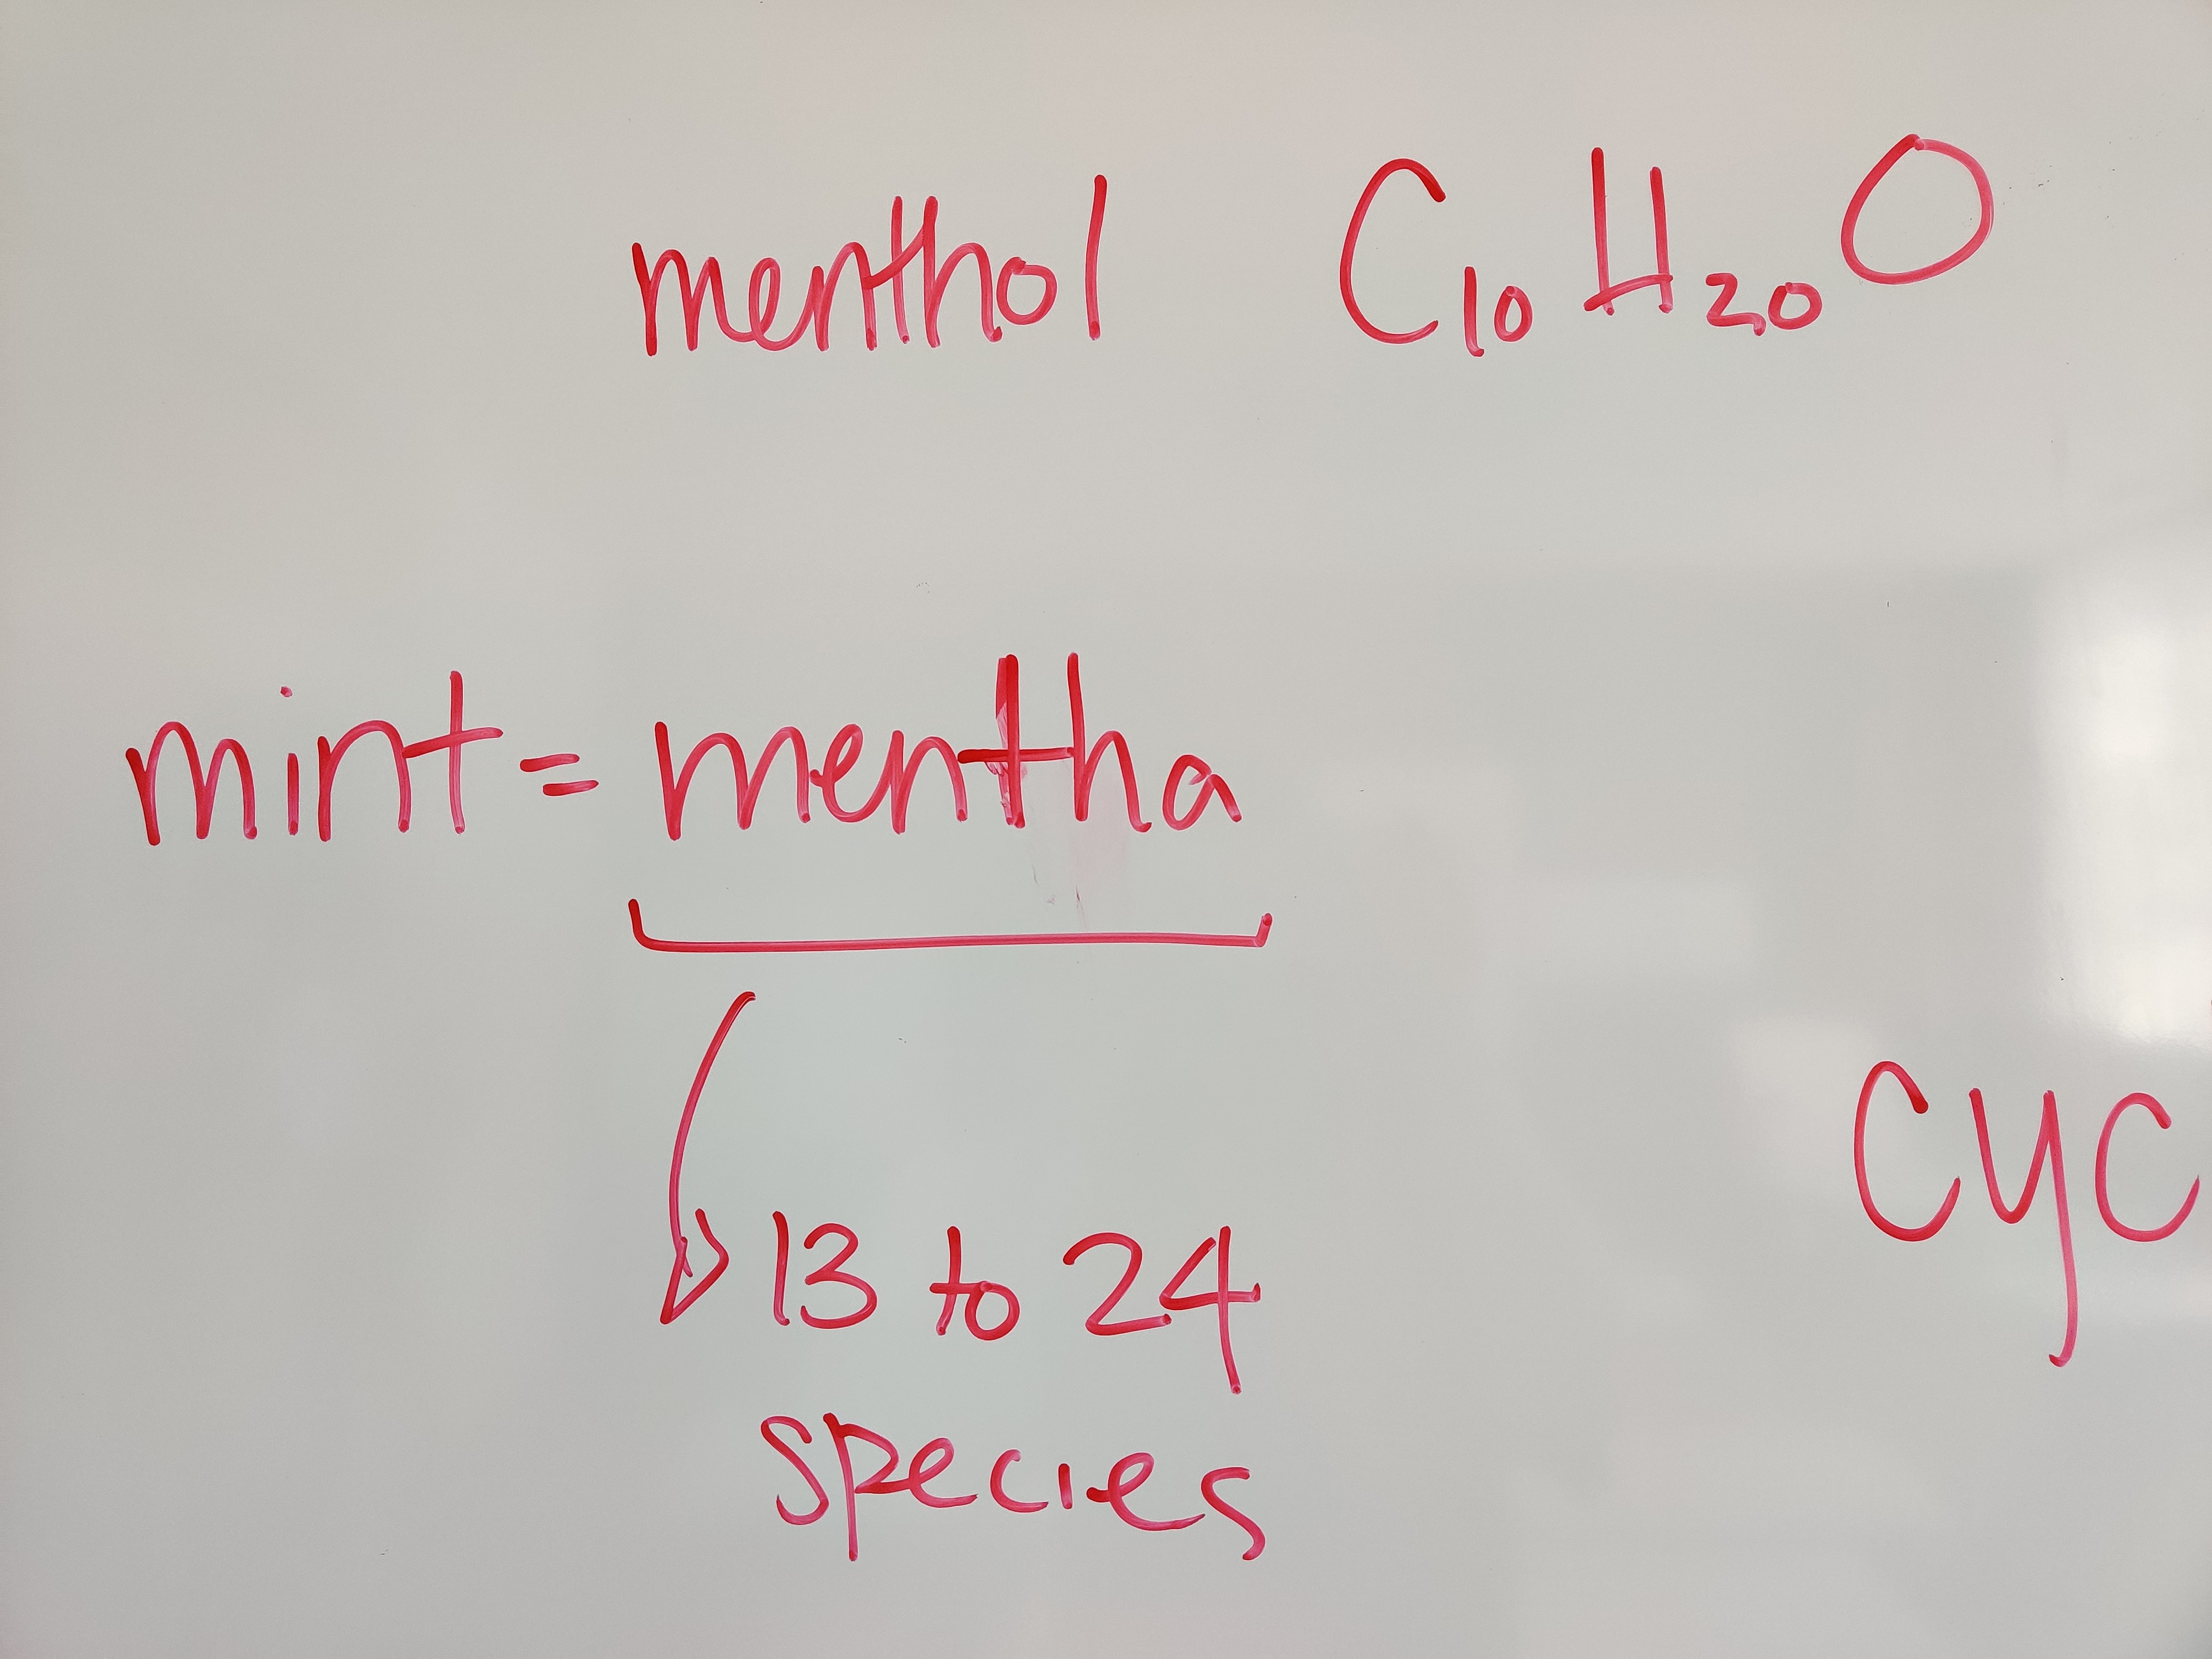 menthol C₁₀H₂₀O
mint = mentha
13 to 24
species
cyc